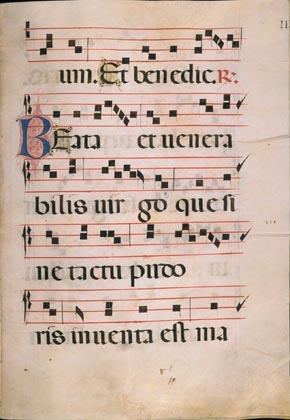 um. Et benedic. R.
Beata et uenera
bilis uir go que si
ne tactu pudo
ris inuenta est ma